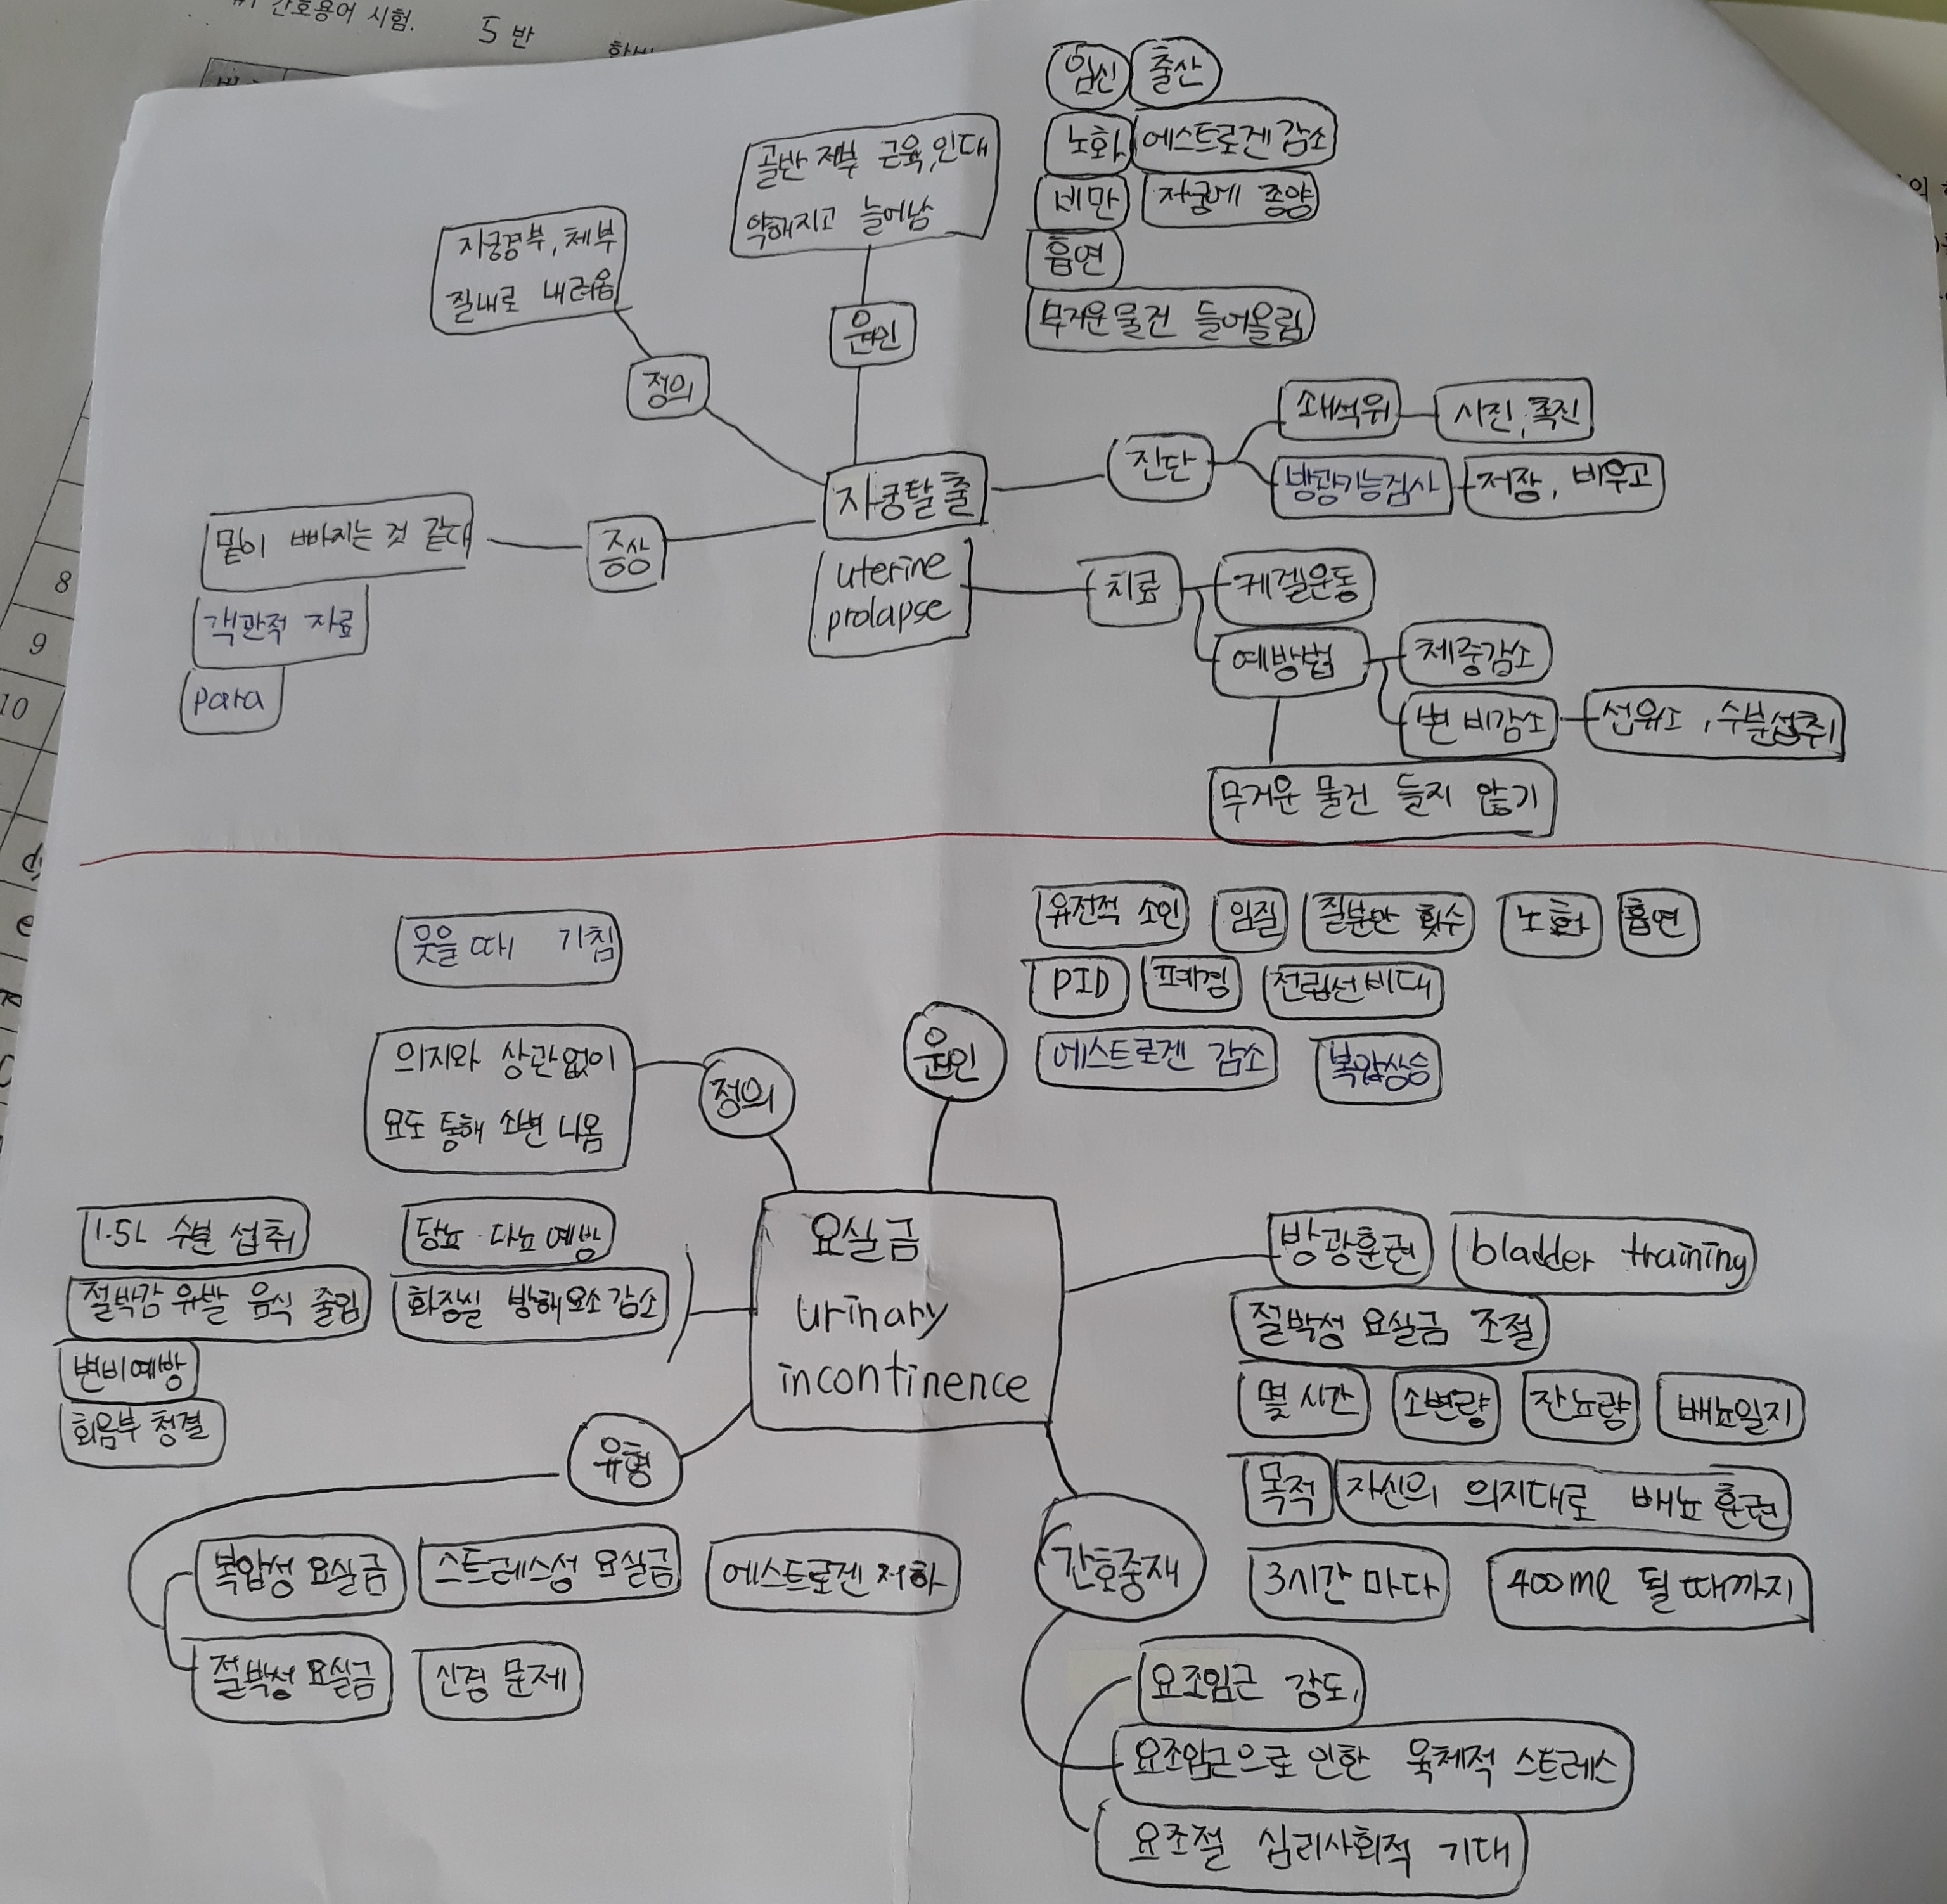 간호용어 시험.
5반
8
9
10
임신 출산
노화 에스트로겐 감소
비만 자궁에 종양
흡연
무거운 물건 들어올림
골반 저부 근육, 인대
약해지고 늘어남
원인
자궁경부, 체부
질내로 내려옴
정의
자궁탈출
uterine
prolapse
증상
밑이 빠지는 것 같다
객관적 자료
para
진단
쇄석위
시진, 촉진
방광기능검사
저장, 비우고
치료
케겔운동
예방법
체중감소
변비감소
섬유소, 수분섭취
무거운 물건 들지 않기
웃을때 기침
의지와 상관없이
요도 통해 소변 나옴
정의
원인
유전적 소인
임질
질분만 횟수
노화
흡연
PID
폐경
전립선비대
에스트로겐 감소
복압상승
요실금
urinary
incontinence
1.5L 수분 섭취
당뇨 다뇨 예방
절박감 유발 음식 줄임
화장실 방해요소 감소
변비예방
회음부 청결
유형
복압성 요실금
스트레스성 요실금
에스트로겐 저하
절박성 요실금
신경 문제
방광훈련
bladder training
절박성 요실금 조절
몇 시간
소변량
잔뇨량
배뇨일지
목적
자신의 의지대로 배뇨 훈련
3시간 마다
400ml 될 때까지
간호중재
요조임근 강도,
요조임근으로 인한 육체적 스트레스
요조절 심리사회적 기대